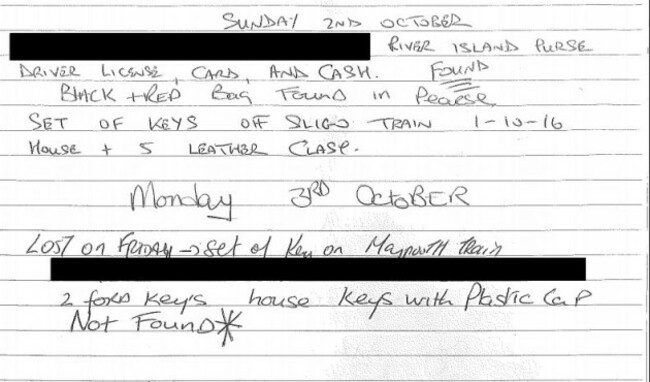 SUNDAY 2ND OCTOBER
RIVER ISLAND PURSE
DRIVER LICENSE, CARD, AND CASH. FOUND
BLACK + RED Bag Found in Pearse
SET OF KEYS OFF SLIGO TRAIN 1-10-16
House + 5 LEATHER CLASP.
Monday 3RD OCTOBER
LOST on FRIDAY → set of Key on Maynouth train
2 ford key's house keys with Plastic CaP
Not Found*